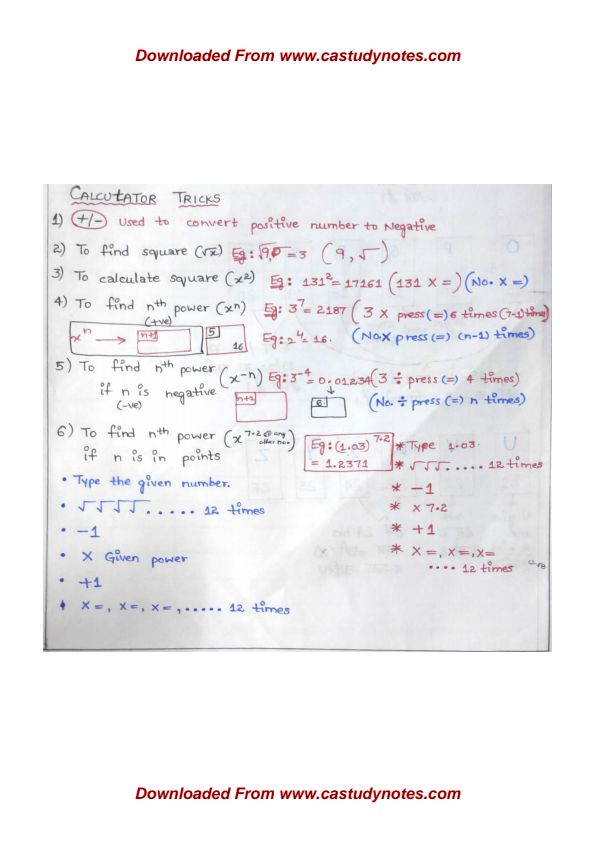 Downloaded From www.castudynotes.com
CALCUtATOR TRICKS
1) +/- Used to convert positive number to Negative
2) To find square (√x) Eg: √9 = 3 (9, √)
3) To calculate square (x²) Eg: 131² = 17161 (131 X =) (No. X =)
4) To find nth power (xⁿ) Eg: 3⁷ = 2187 (3 X press (=) 6 times (7-1) time)
(+ve)
xⁿ → n+1 5 16 Eg: 2⁴ = 16. (No.X press (=) (n-1) times)
5) To find nth power (x⁻ⁿ) Eg: 3⁻⁴ = 0.01234 (3 ÷ press (=) 4 times)
if n is negative n+2 6 (No. ÷ press (=) n times)
(-ve)
6) To find nth power (x 7.2 or any other no.) Eg: (1.03)^7.2 * Type 1.03.
if n is in points = 1.2371 * √√√..... 12 times
• Type the given number. * -1
• √√√√..... 12 times * X 7.2
• -1 * +1
• X Given power * X =, X =, X =
.... 12 times
• +1
• X =, X =, X =, ..... 12 times
Downloaded From www.castudynotes.com